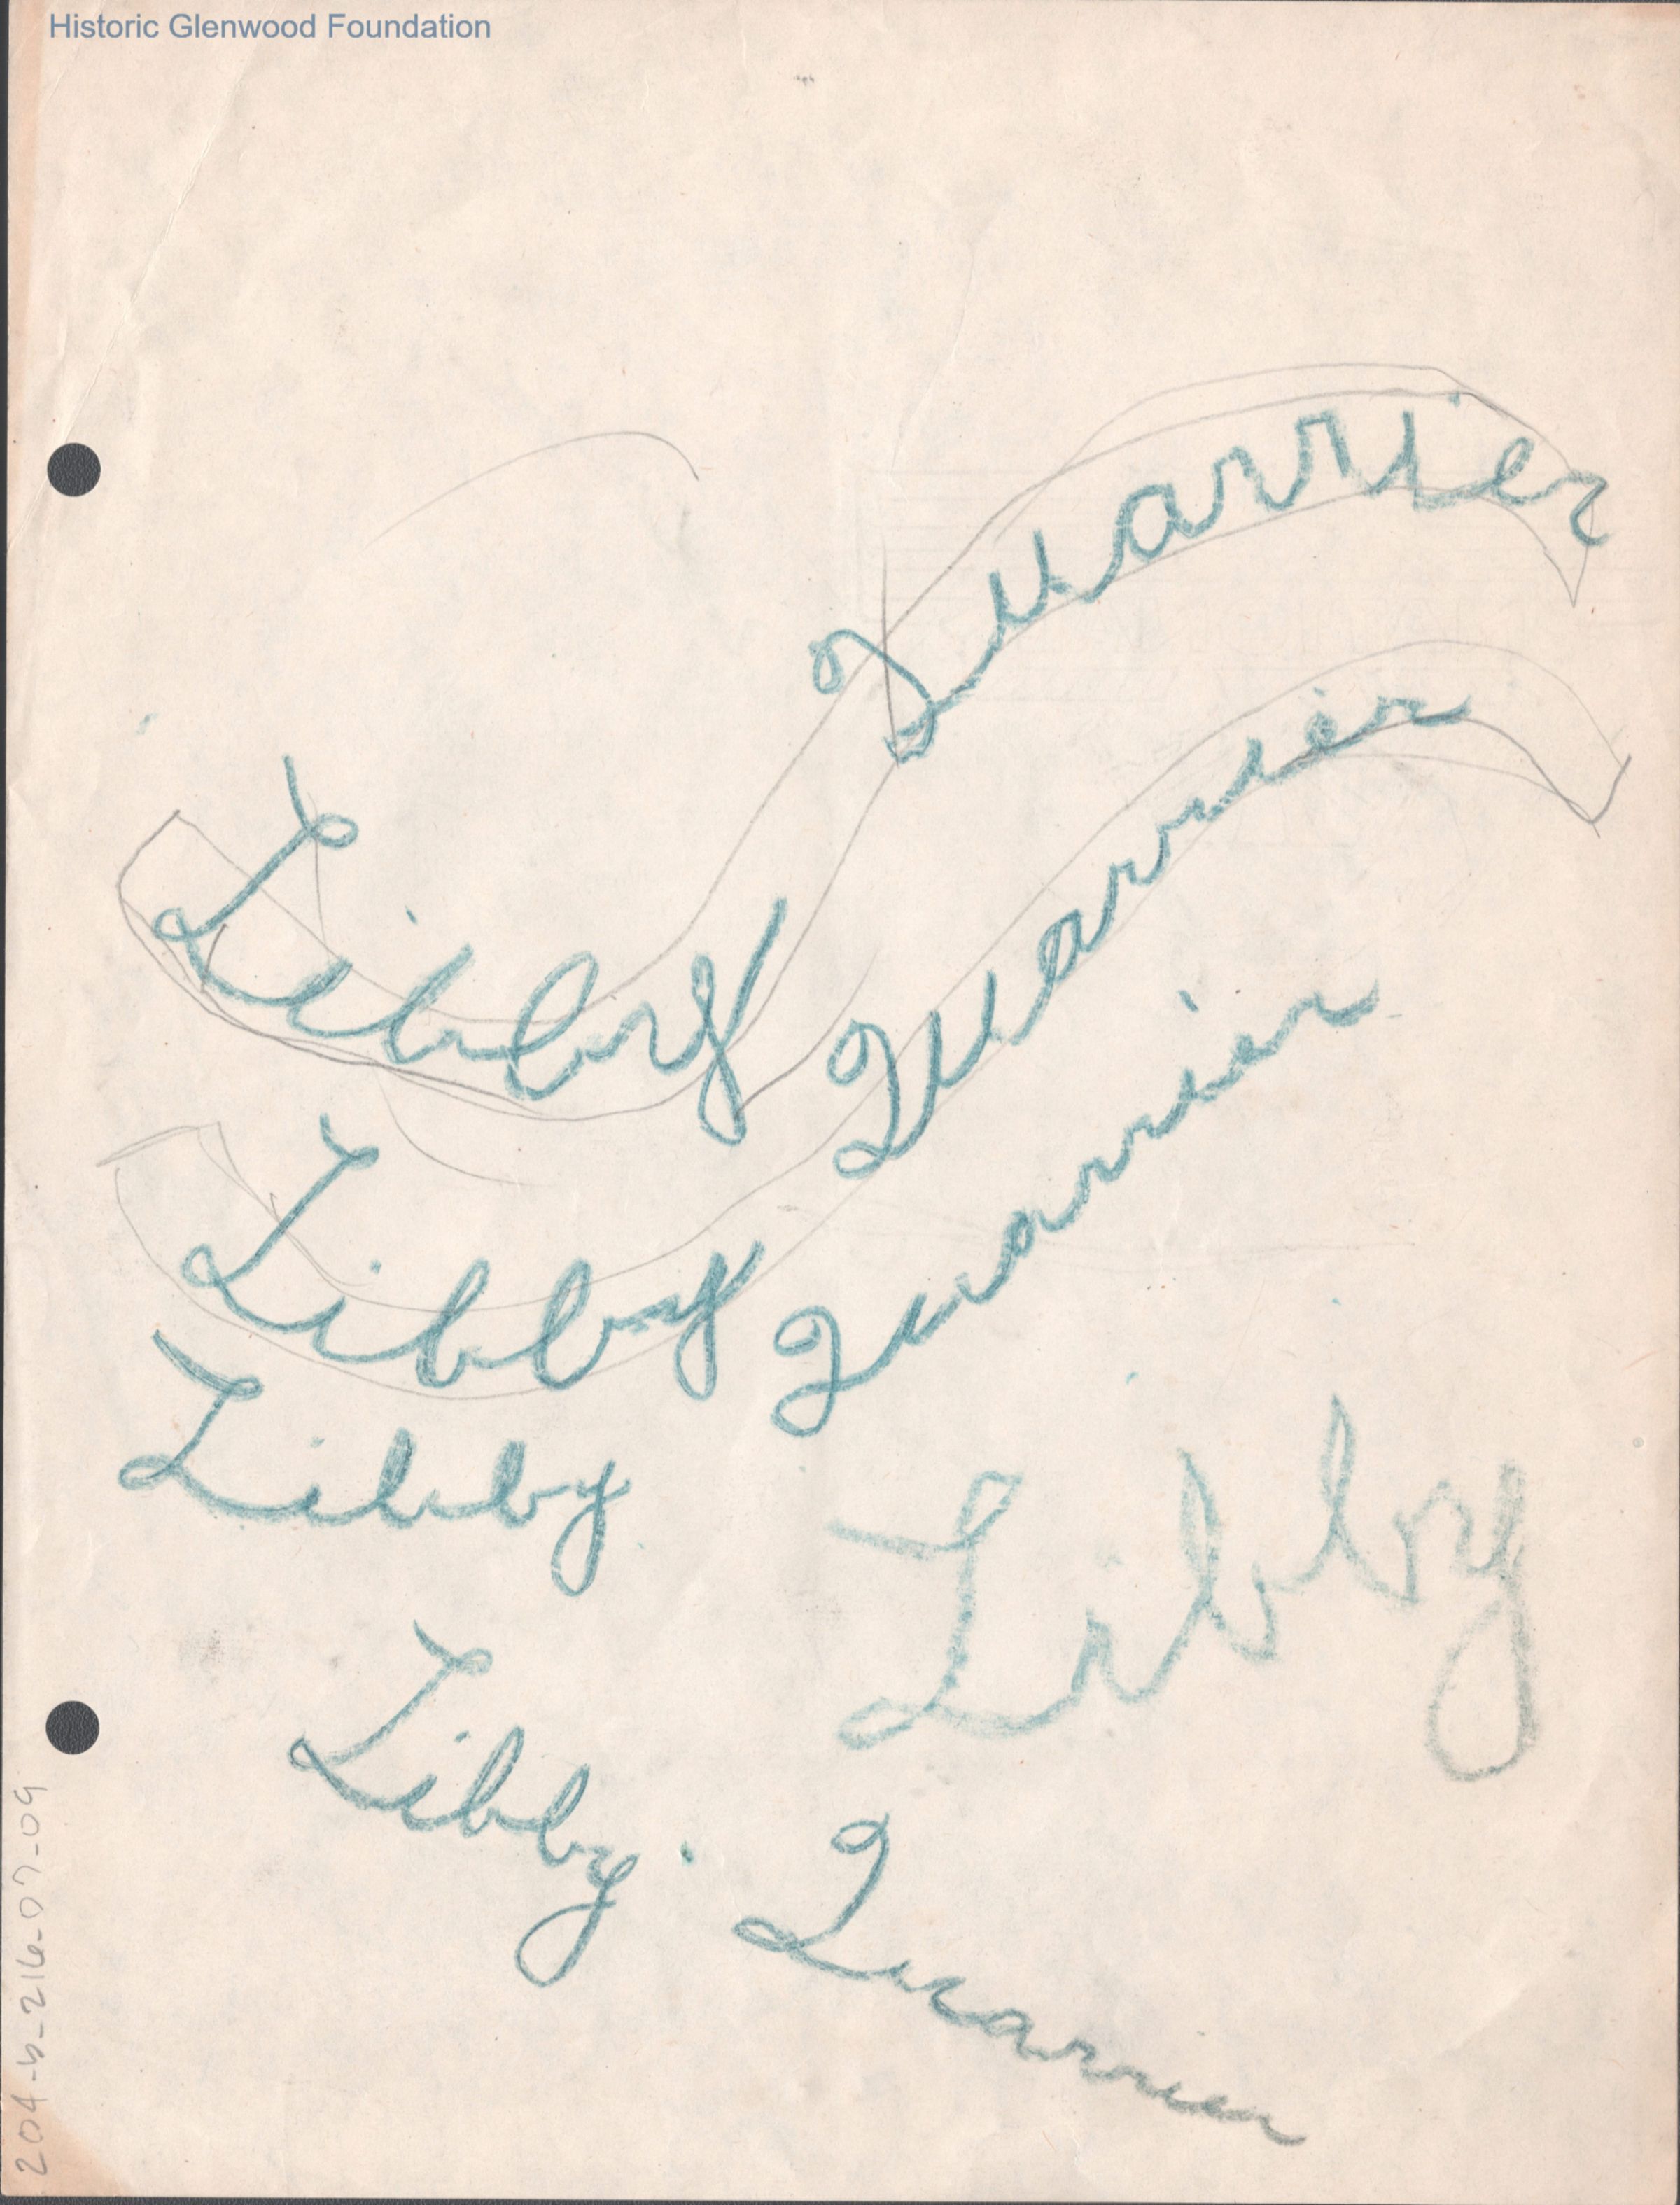 Historic Glenwood Foundation
Libby Quarrier
Libby Quarrier
Libby Quarrier
Libby
Libby Quarrier
204-b-216-07-09